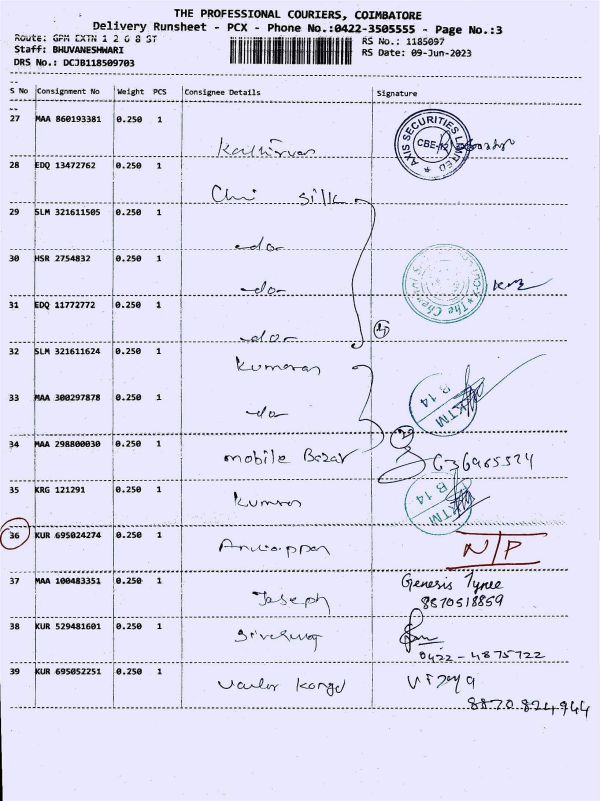 THE PROFESSIONAL COURIERS, COIMBATORE
Delivery Runsheet - PCX - Phone No.:0422-3505555 - Page No.:3
Route: GPM EXTN 1 2 6 8 ST
RS No.: 1185097
Staff: BHUVANESHWARI
RS Date: 09-Jun-2023
DRS No.: DCJB118509703
S No Consignment No Weight PCS Consignee Details Signature
27 MAA 860193381 0.250 1
AXIS SECURITIES LIMITED
CBE
28 EDQ 13472762 0.250 1
Silk
29 SLM 321611505 0.250 1
-do-
30 HSR 2754832 0.250 1
-do-
The Chennai
31 EDQ 11772772 0.250 1
-do-
32 SLM 321611624 0.250 1
Kumaran
33 MAA 300297878 0.250 1
-do-
KTM
B 14
34 MAA 298800030 0.250 1
mobile Bazar
35 KRG 121291 0.250 1
Kumran
KTM
B 14
36 KUR 695024274 0.250 1
N/P
37 MAA 100483351 0.250 1
Joseph
Genesis
8870518859
38 KUR 529481601 0.250 1
0422-4875722
39 KUR 695052251 0.250 1
Vijaya
8870824944